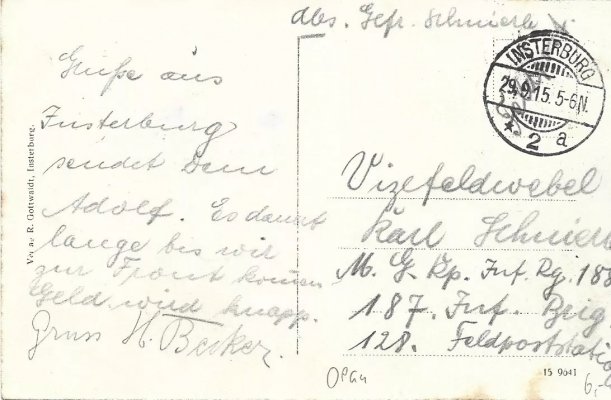 Abs. Gefr. Schmierle
INSTERBURG
29.9.15. 5-6N.
* 2 a
Grüße aus
Insterburg
sendet Dein
Adolf. Es dauert
lange bis wir
zur Front kommen
Geld wird knapp.
Gruss H. Becker.
Vizefeldwebel
Karl Schmierl
M. G. Kp. Inf. Rg. 188
187. Inf. Brig
128. Feldpoststation
Verlag R. Gottwaldt, Insterburg.
15 9041
6,-